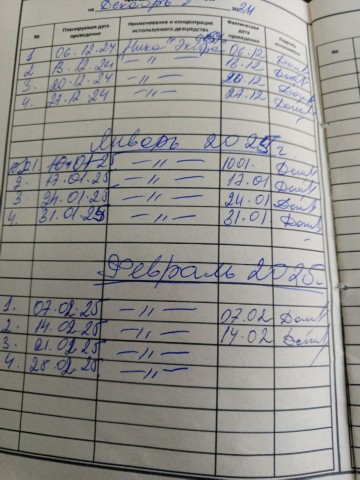 на Декабрь 2024
№ Планируемая дата проведения Наименование и концентрация используемого дезсредства Фактическая дата проведения Подпись
1. 06.12.24 Ника 06.12
2 13.12.24 — " — 13.12
3. 20.12.24 — " — 20.12
4. 27.12.24 — " — 27.12
Январь 2025 г.
1. 10.01.25 — " — 10.01.
2. 17.01.25 — " — 17.01
3 24.01.25 — " — 24.01
4. 31.01.25 — " — 31.01
Февраль 2025
1. 07.02.25 — " — 07.02
2. 14.02.25 — " — 14.02
3. 21.02.25 — " —
4. 28.02.25 — " —